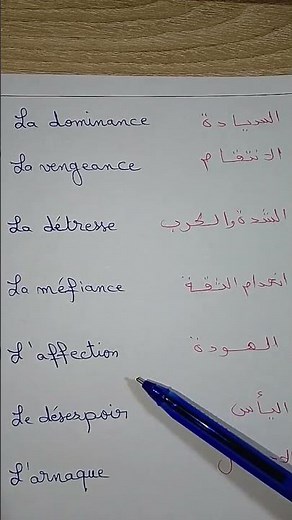 La dominance السيادة
La vengeance الانتقام
La détresse الشدة والكرب
La méfiance انعدام الثقة
L'affection المودة
Le désespoir اليأس
L'arnaque